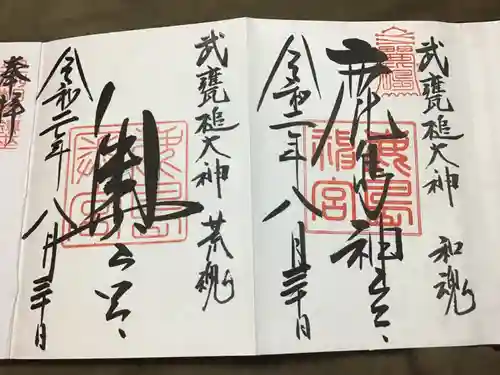 武甕槌大神 和魂
鹿島神宮
令和二年八月三十日
武甕槌大神 荒魂
奥宮
令和二年八月三十日
奉拝
鹿島神宮